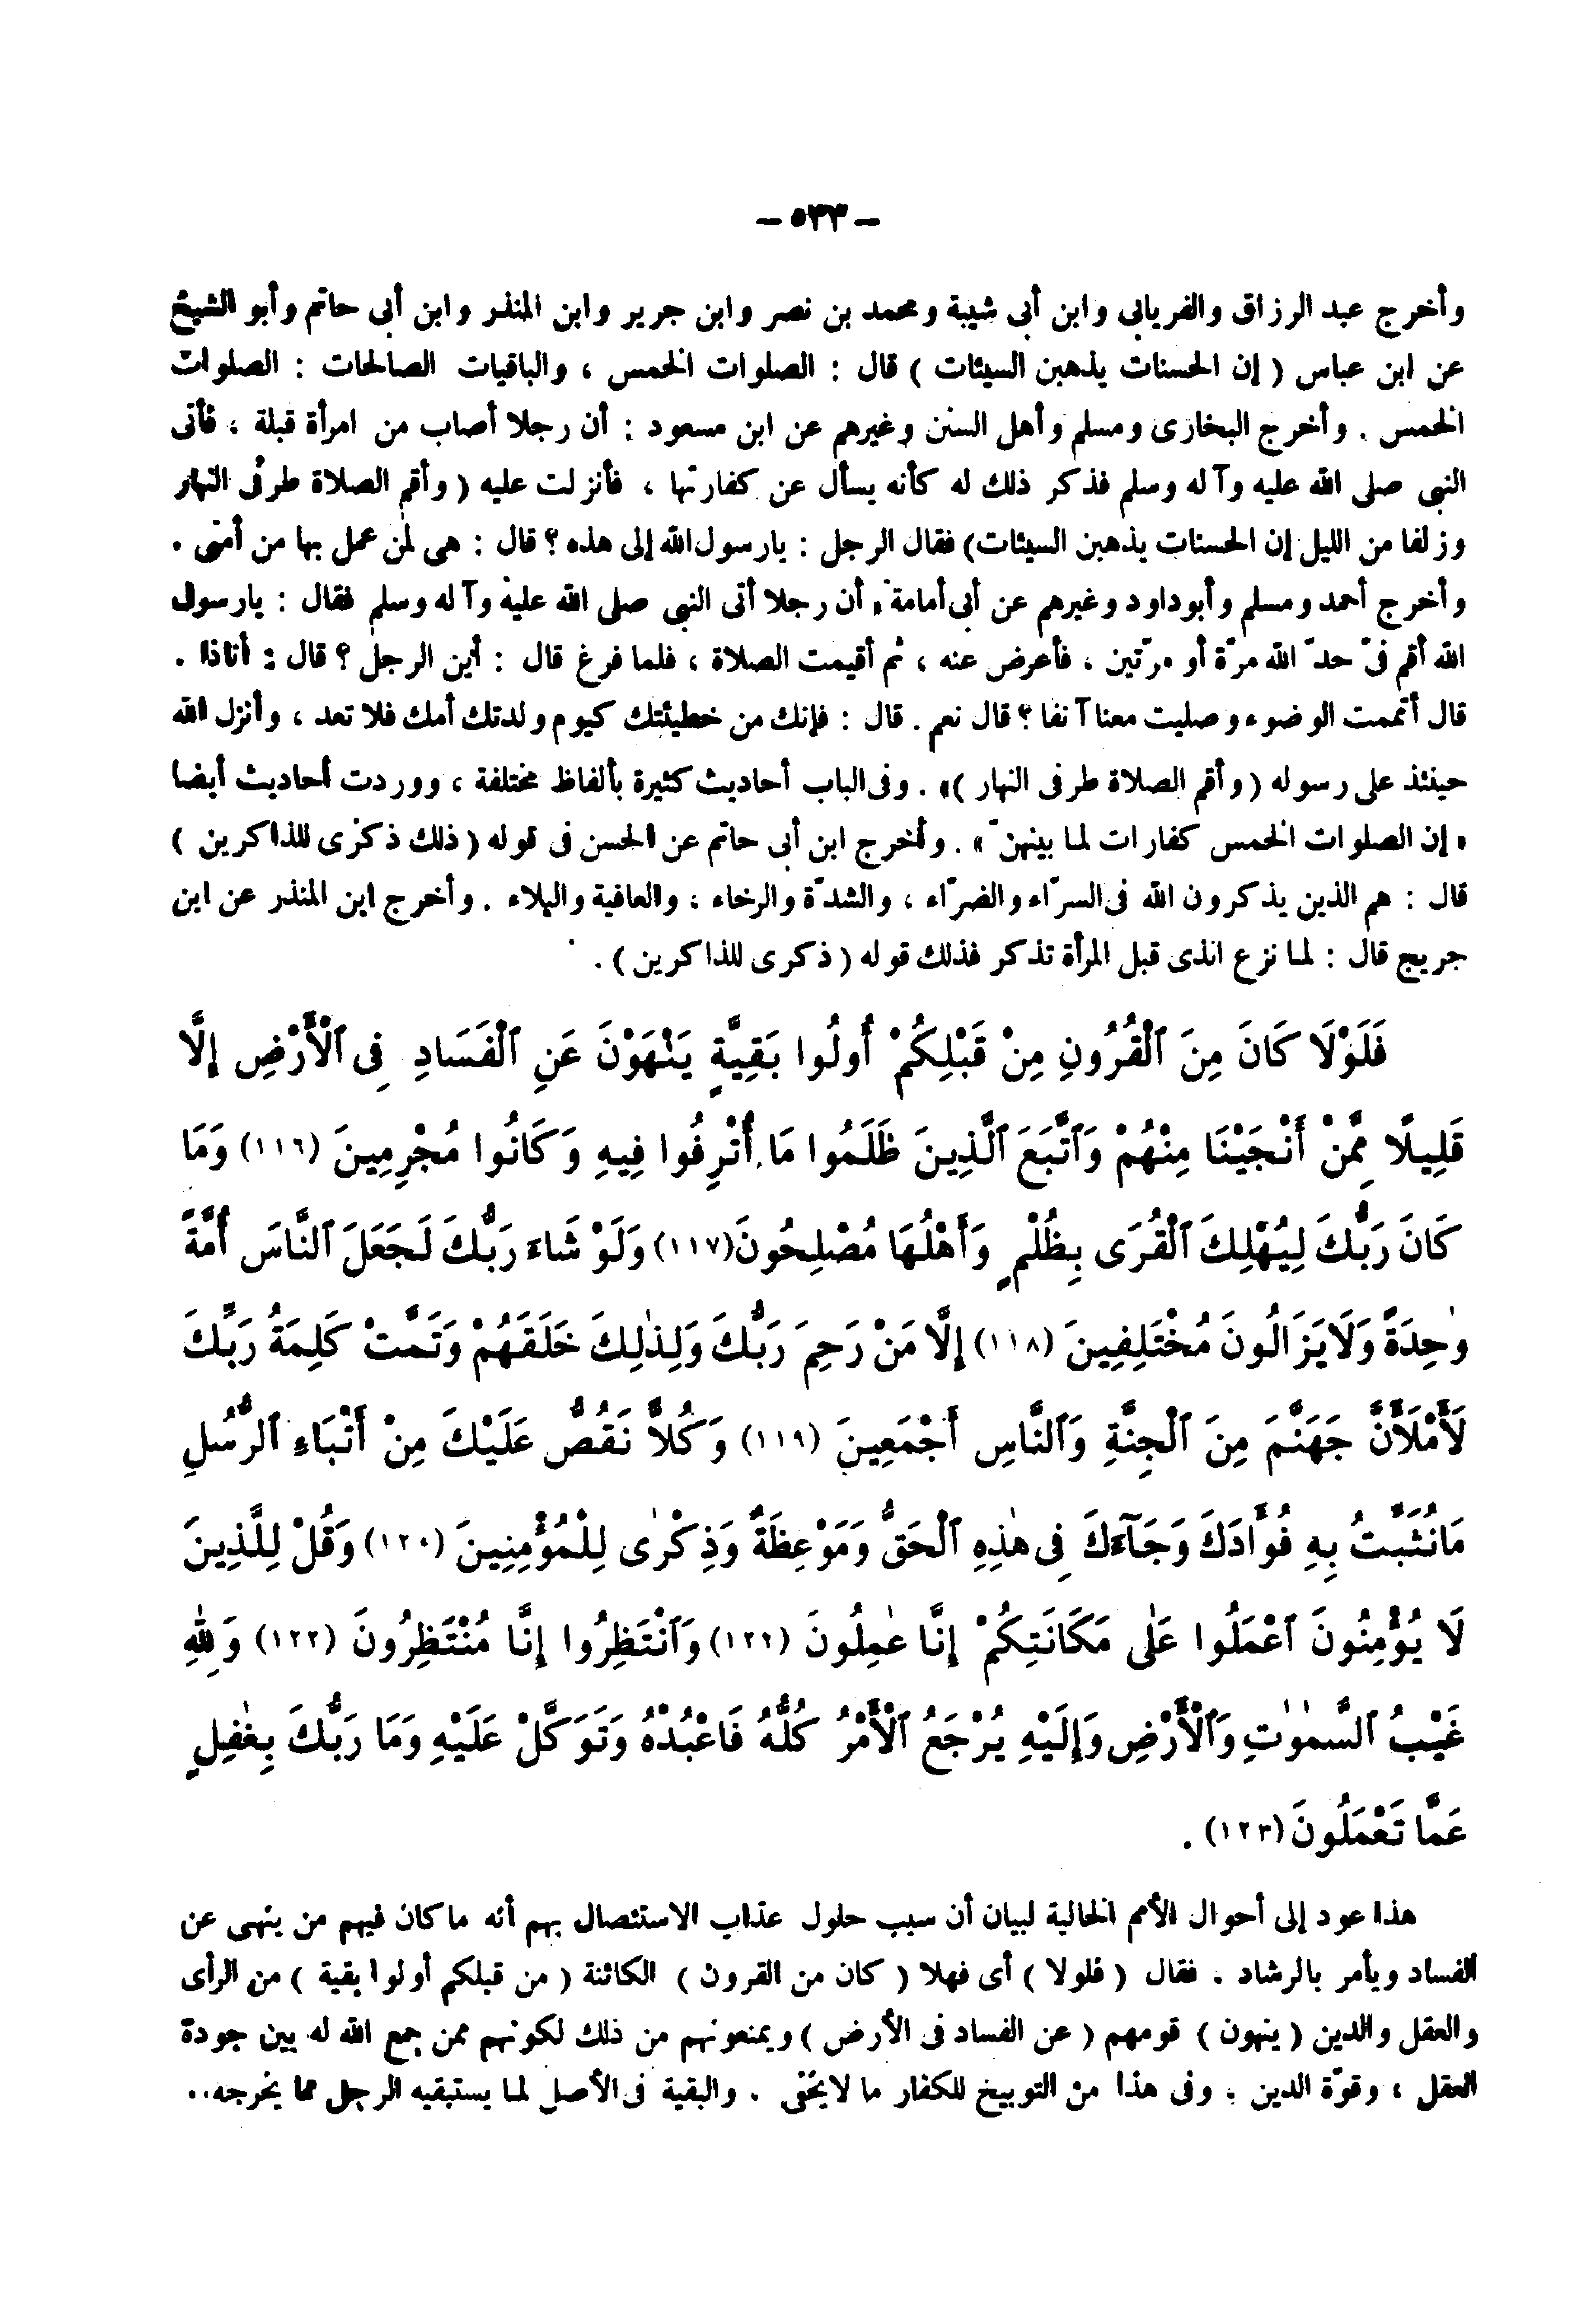 – ٥٣٣ –
وأخرج عبد الرزاق والفريابى وابن أبى شيبة ومحمد بن نصر وابن جرير وابن المنذر وابن أبى حاتم وأبو الشيخ
عن ابن عباس ( إن الحسنات يذهبن السيئات ) قال : الصلوات الخمس ، والباقيات الصالحات : الصلوات
الخمس . وأخرج البخارى ومسلم وأهل السنن وغيرهم عن ابن مسعود : أن رجلا أصاب من امرأة قبلة ، فأتى
النبى صلى الله عليه وآله وسلم فذكر ذلك له كأنه يسأل عن كفارتها ، فأنزلت عليه ( وأقم الصلاة طرفى النهار
وزلفا من الليل إن الحسنات يذهبن السيئات) فقال الرجل : يارسول الله إلى هذه ؟ قال : هى لمن عمل بها من أمتى .
وأخرج أحمد ومسلم وأبوداود وغيرهم عن أبى أمامة « أن رجلا أتى النبى صلى الله عليه وآله وسلم فقال : يارسول
الله أقم فىّ حدّ الله مرّة أو مرّتين ، فأعرض عنه ، ثم أقيمت الصلاة ، فلما فرغ قال : أين الرجل ؟ قال : أناذا .
قال أتممت الوضوء وصليت معنا آنفا ؟ قال نعم . قال : فإنك من خطيئتك كيوم ولدتك أمك فلا تعد ، وأنزل الله
حينئذ على رسوله ( وأقم الصلاة طرفى النهار )» . وفى الباب أحاديث كثيرة بألفاظ مختلفة ، ووردت أحاديث أيضا
« إن الصلوات الخمس كفارات لما بينهنّ » . وأخرج ابن أبى حاتم عن الحسن فى قوله ( ذلك ذكرى للذاكرين )
قال : هم الذين يذكرون الله فى السرّاء والضرّاء ، والشدّة والرخاء ، والعافية والبلاء . وأخرج ابن المنذر عن ابن
جريج قال : لما نزع الذى قبل المرأة تذكر فذلك قوله ( ذكرى للذاكرين ) .
فَلَوْلَا كَانَ مِنَ ٱلْقُرُونِ مِنْ قَبْلِكُمْ أُولُوا بَقِيَّةٍ يَنْهَوْنَ عَنِ ٱلْفَسَادِ فِى ٱلْأَرْضِ إِلَّا
قَلِيلًا مِمَّنْ أَنْجَيْنَا مِنْهُمْ وَٱتَّبَعَ ٱلَّذِينَ ظَلَمُوا مَا أُتْرِفُوا فِيهِ وَكَانُوا مُجْرِمِينَ (١١٦) وَمَا
كَانَ رَبُّكَ لِيُهْلِكَ ٱلْقُرَى بِظُلْمٍ وَأَهْلُهَا مُصْلِحُونَ(١١٧) وَلَوْ شَاءَ رَبُّكَ لَجَعَلَ ٱلنَّاسَ أُمَّةً
وٰحِدَةً وَلَايَزَالُونَ مُخْتَلِفِينَ (١١٨) إِلَّا مَنْ رَحِمَ رَبُّكَ وَلِذٰلِكَ خَلَقَهُمْ وَتَمَّتْ كَلِمَةُ رَبِّكَ
لَأَمْلَأَنَّ جَهَنَّمَ مِنَ ٱلْجِنَّةِ وَٱلنَّاسِ أَجْمَعِينَ (١١٩) وَكُلًّا نَقُصُّ عَلَيْكَ مِنْ أَنْبَاءِ ٱلرُّسُلِ
مَانُثَبِّتُ بِهِ فُؤَادَكَ وَجَآءَكَ فِى هٰذِهِ ٱلْحَقُّ وَمَوْعِظَةٌ وَذِكْرٰى لِلْمُؤْمِنِينَ (١٢٠) وَقُلْ لِلَّذِينَ
لَا يُؤْمِنُونَ ٱعْمَلُوا عَلٰى مَكَانَتِكُمْ إِنَّا عٰمِلُونَ (١٢١) وَٱنْتَظِرُوا إِنَّا مُنْتَظِرُونَ (١٢٢) وَلِلّٰهِ
غَيْبُ ٱلسَّمٰوٰتِ وَٱلْأَرْضِ وَإِلَيْهِ يُرْجَعُ ٱلْأَمْرُ كُلُّهُ فَاعْبُدْهُ وَتَوَكَّلْ عَلَيْهِ وَمَا رَبُّكَ بِغٰفِلٍ
عَمَّا تَعْمَلُونَ (١٢٣) .
هذا عود إلى أحوال الأمم الخالية لبيان أن سبب حلول عذاب الاستئصال بهم أنه ما كان فيهم من ينهى عن
الفساد ويأمر بالرشاد . فقال ( فلولا ) أى فهلا ( كان من القرون ) الكائنة ( من قبلكم أولوا بقية ) من الرأى
والعقل والدين ( ينهون ) قومهم ( عن الفساد فى الأرض ) ويمنعونهم من ذلك لكونهم ممن جمع الله له بين جودة
العقل ، وقوّة الدين ، وفى هذا من التوبيخ للكفار ما لايخفى . والبقية فى الأصل لما يستبقيه الرجل مما يخرجه..